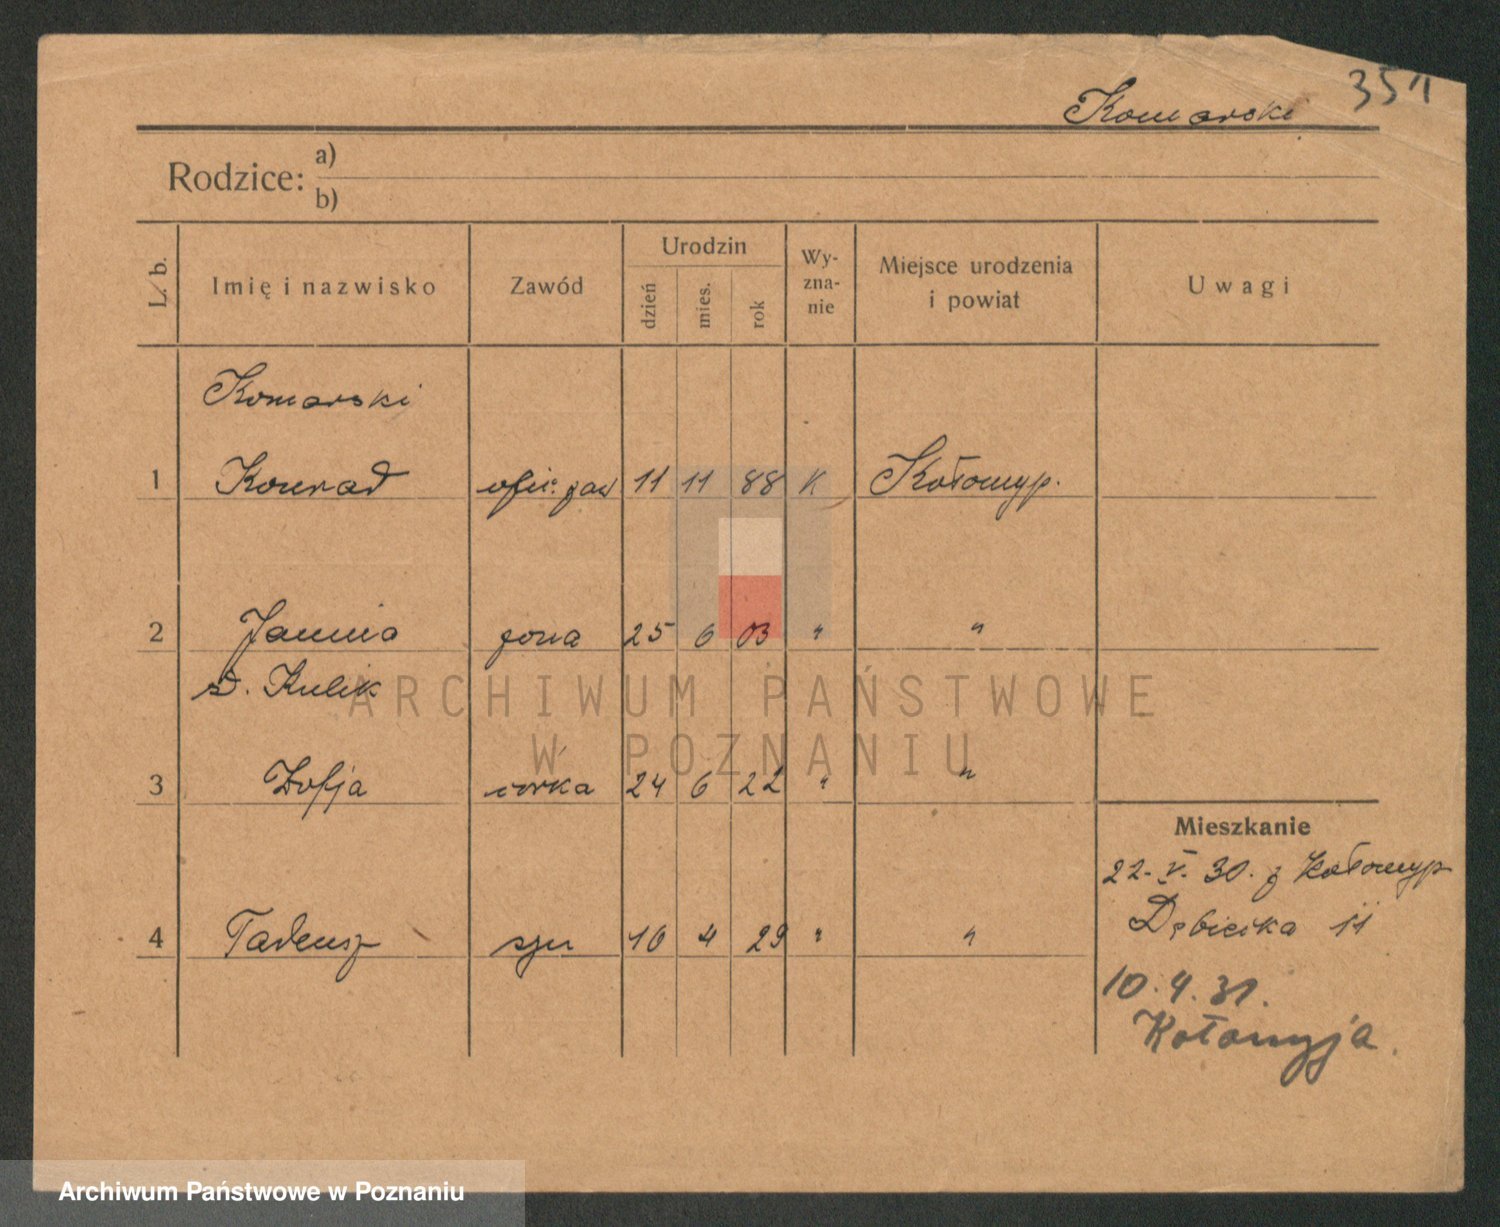 351
Komarski
Rodzice: a)
b)
L. b. Imię i nazwisko Zawód Urodzin dzień mies. rok Wy-zna-nie Miejsce urodzenia i powiat Uwagi
Komarski
1 Konrad ofic. zaw 11 11 88 K Kołomyp.
2 Janina żona 25 6 03 " "
z d. Kulik
3 Zofja córka 24 6 22 " "
4 Tadeusz syn 10 4 29 " "
Mieszkanie
22. V. 30. z Kołomyp
Dębiecka 11
10.4.31.
Kołomyja.
ARCHIWUM PAŃSTWOWE
W POZNANIU
Archiwum Państwowe w Poznaniu